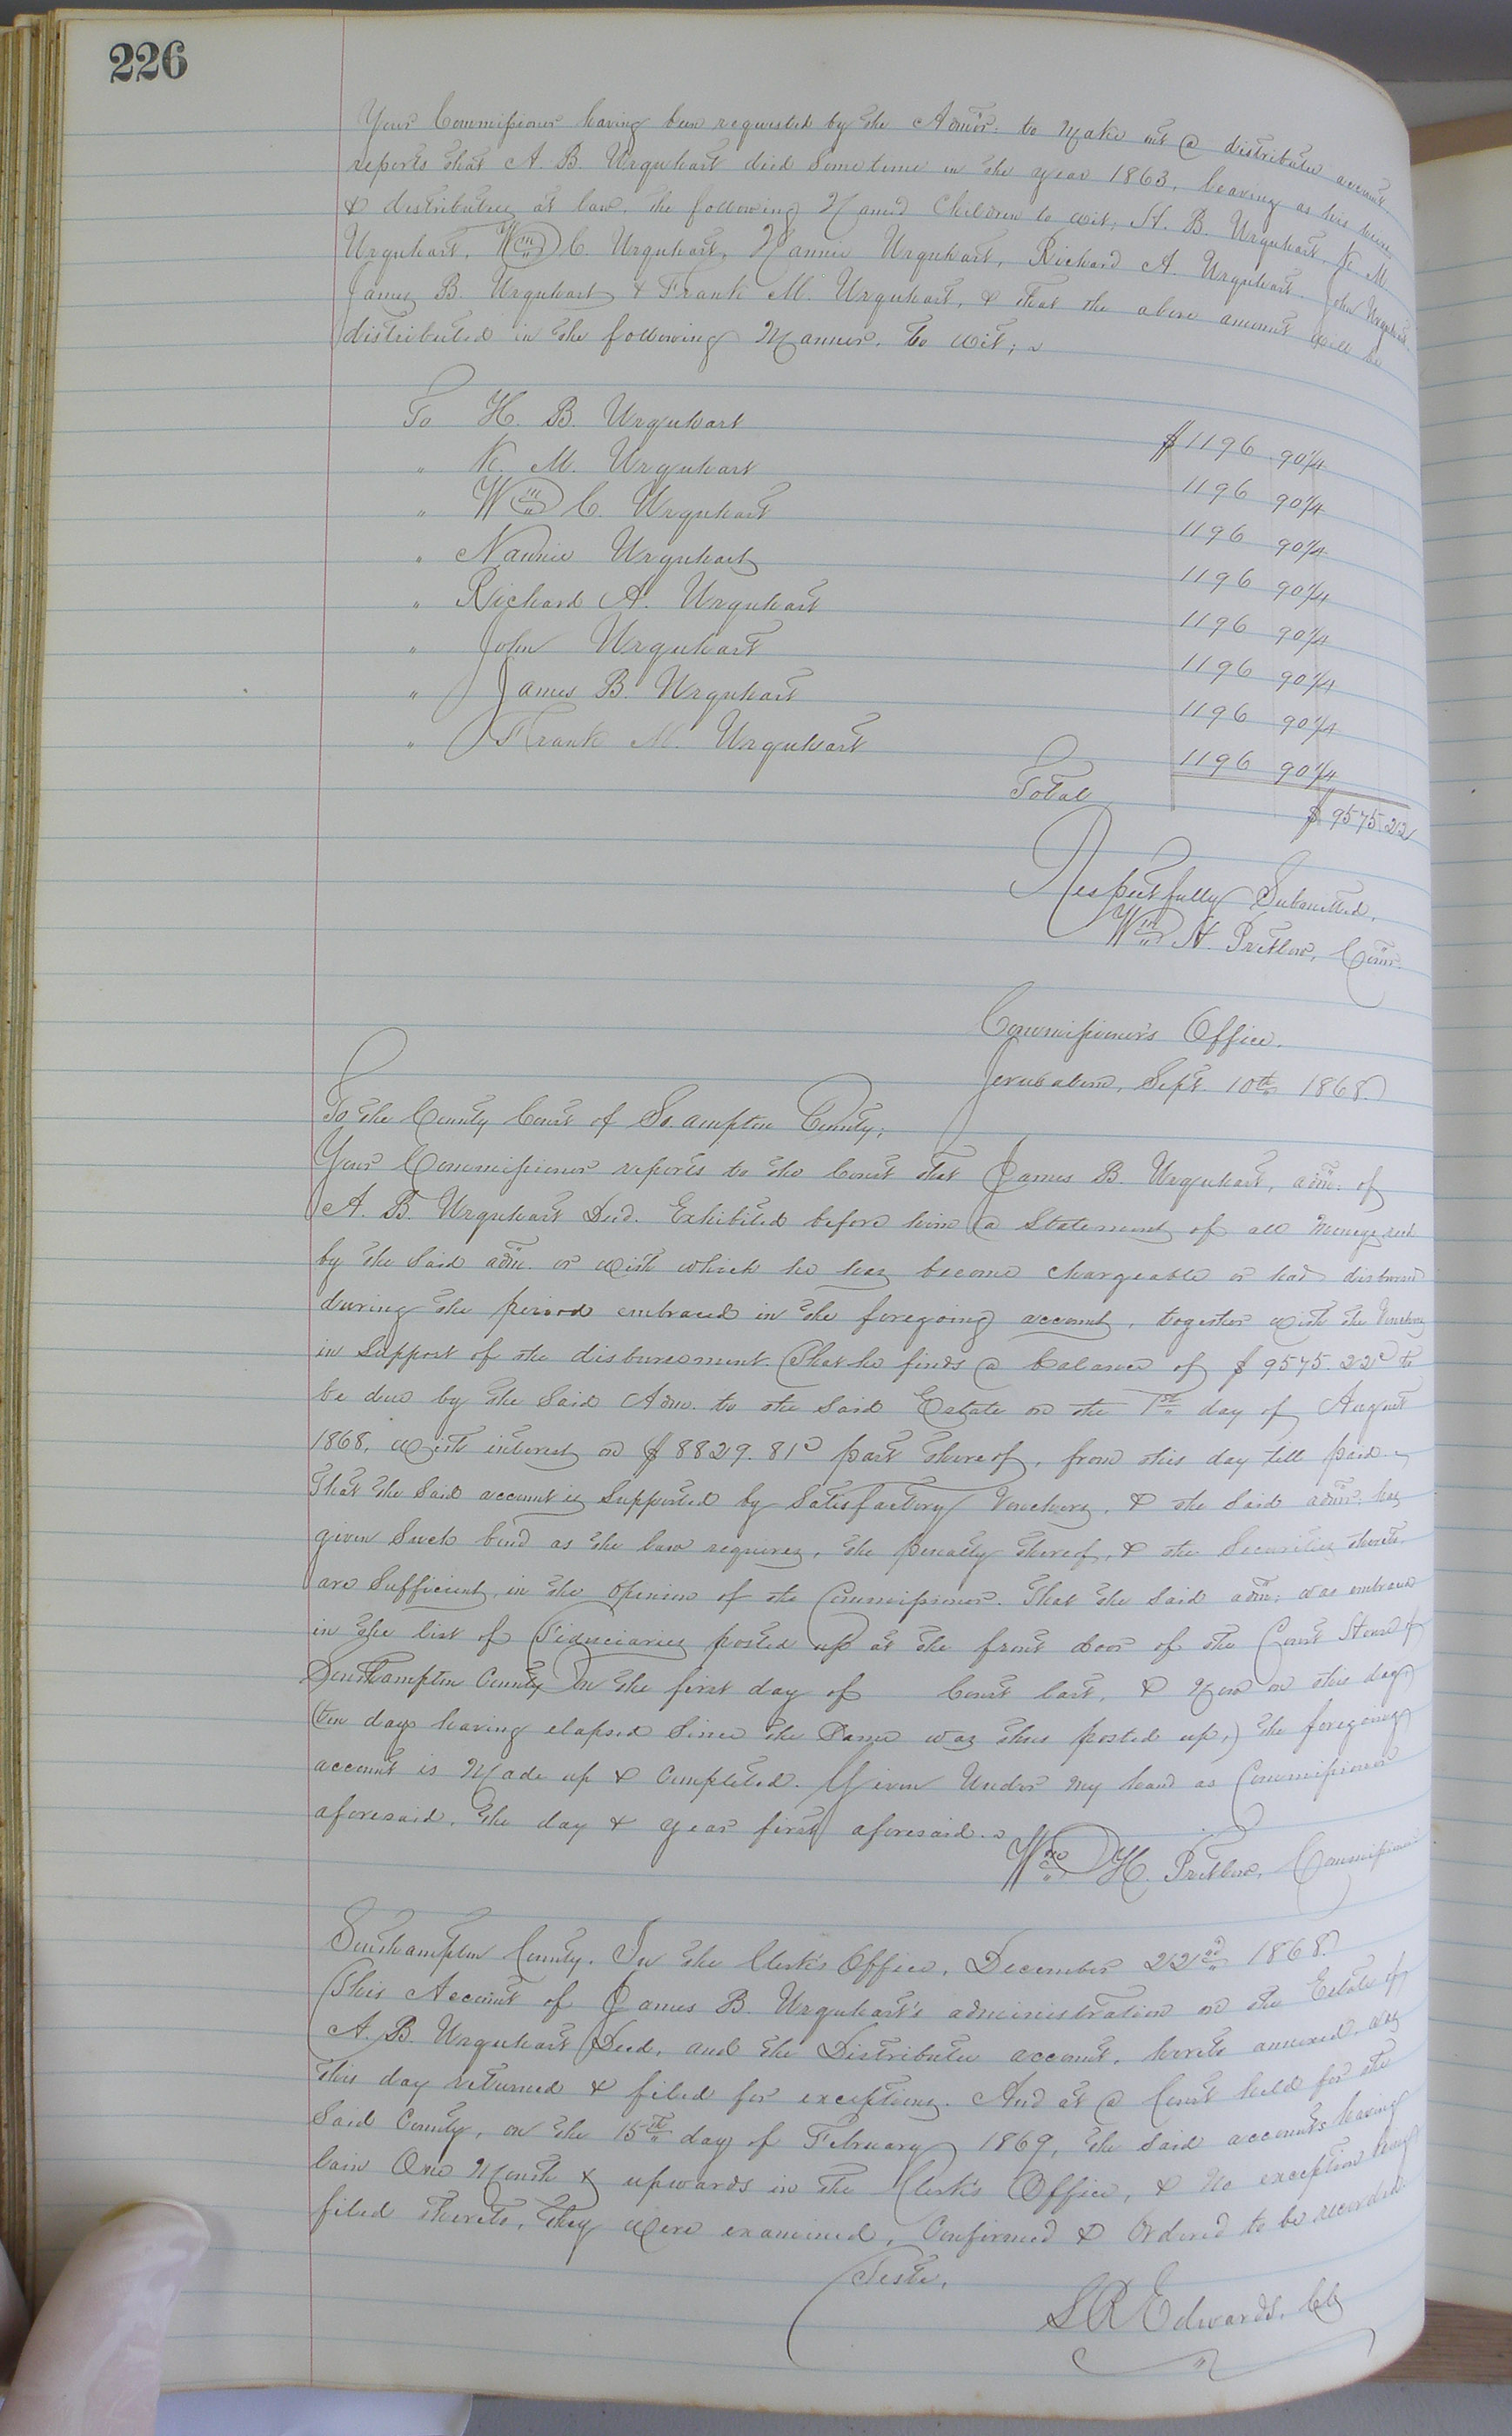 226
Your Commissioner having been requested by the Admor. to Make out a distributee account,
reports that A. B. Urquhart died sometime in the year 1863, leaving as his heirs
& distributees at law, the following Named Children to wit; H. B. Urquhart, K. M.
Urquhart, Wm C. Urquhart, Nannie Urquhart, Richard A. Urquhart, John Urquhart,
James B. Urquhart & Frank M. Urquhart, & that the above amount will be
distributed in the following Manner, to wit;
To H. B. Urquhart $1196 90 1/4
" K. M. Urquhart 1196 90 1/4
" Wm C. Urquhart 1196 90 1/4
" Nannie Urquhart 1196 90 1/4
" Richard A. Urquhart 1196 90 1/4
" John Urquhart 1196 90 1/4
" James B. Urquhart 1196 90 1/4
" Frank M. Urquhart 1196 90 1/4
Total $9575.22
Respectfully Submitted,
Wm H. Pretlow, Comr.
Commissioner's Office,
Jerusalem, Sept. 10th 1868.
To the County Court of So.ampton County;
Your Commissioner reports to the Court that James B. Urquhart, adm. of
A. B. Urquhart Decd. Exhibited before him a Statement of all Moneys recd
by the Said adm. or with which he has become chargeable or had disbursed
during the period embraced in the foregoing account, together with the Vouchers
in Support of the disbursement. That he finds a balance of $9575.22c to
be due by the Said Adm. to the Said Estate on the 1st day of August
1868, with interest on $8829.81c part thereof, from this day till paid.
That the Said account is Supported by Satisfactory Vouchers, & the Said admr. has
given Such bond as the law requires, the penalty thereof, & the Securities thereto,
are Sufficient, in the Opinion of the Commissioner. That the Said adm: was embraced
in the list of Fiduciaries posted up at the front door of the Court House of
Southampton County on the first day of Court last, & Now on this day,
(ten days having elapsed Since the Same was thus posted up,) the foregoing
account is Made up & Completed. Given Under My hand as Commissioner
aforesaid, the day & year first aforesaid.
Wm H. Pretlow, Commissioner
Southampton County. In the Clerk's Office, December 22nd 1868.
This Account of James B. Urquhart's administration on the Estate of
A. B. Urquhart Decd, and the Distributee account, hereto annexed, was
this day returned & filed for exceptions. And at a Court held for the
Said County, on the 15th day of February 1869, the Said accounts having
lain One Month & upwards in the Clerk's Office, & No exception being
filed thereto, they were examined, Confirmed & Ordered to be recorded.
Teste,
L R Edwards, Clk